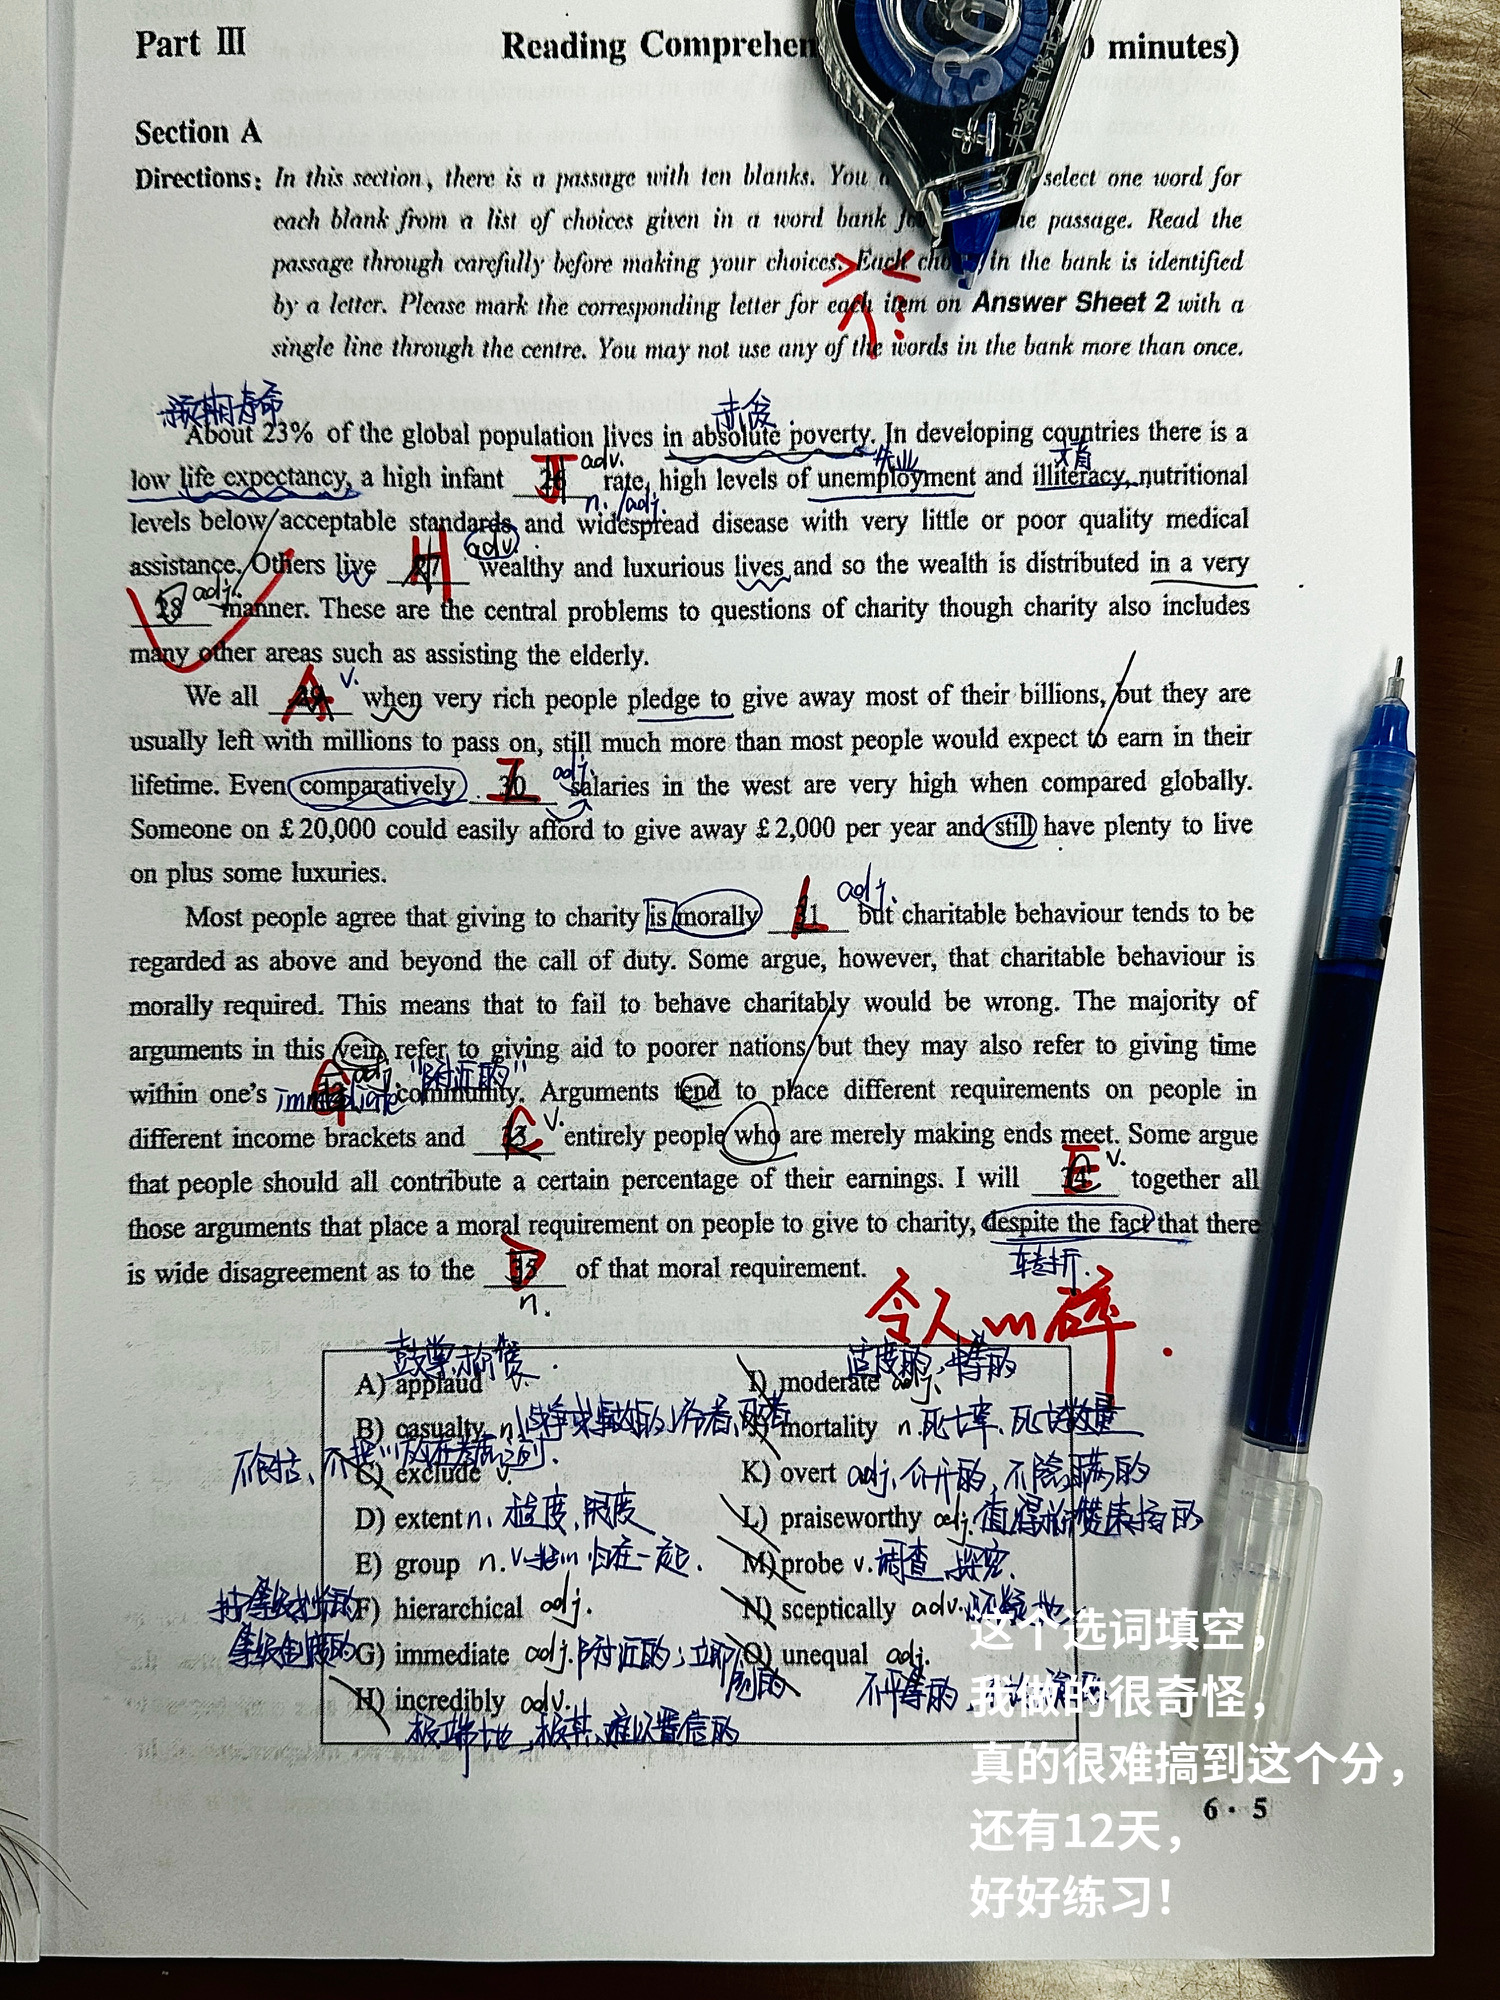 Part III Reading Comprehen minutes)
Section A
Directions: In this section, there is a passage with ten blanks. You select one word for
each blank from a list of choices given in a word bank the passage. Read the
passage through carefully before making your choices. Each in the bank is identified
by a letter. Please mark the corresponding letter for each item on Answer Sheet 2 with a
single line through the centre. You may not use any of the words in the bank more than once.
预期寿命 赤贫
About 23% of the global population lives in absolute poverty. In developing countries there is a
adv. 失业 文盲
low life expectancy, a high infant J 26 rate, high levels of unemployment and illiteracy, nutritional
n. /adj.
levels below acceptable standards and widespread disease with very little or poor quality medical
adv.
assistance. Others live H 27 wealthy and luxurious lives and so the wealth is distributed in a very
28 adj. manner. These are the central problems to questions of charity though charity also includes
many other areas such as assisting the elderly.
We all A 29 v. when very rich people pledge to give away most of their billions, but they are
usually left with millions to pass on, still much more than most people would expect to earn in their
lifetime. Even comparatively I 30 adj. salaries in the west are very high when compared globally.
Someone on £20,000 could easily afford to give away £2,000 per year and still have plenty to live
on plus some luxuries.
Most people agree that giving to charity is morally L 31 adj. but charitable behaviour tends to be
regarded as above and beyond the call of duty. Some argue, however, that charitable behaviour is
morally required. This means that to fail to behave charitably would be wrong. The majority of
arguments in this vein refer to giving aid to poorer nations but they may also refer to giving time
adj. "附近的"
within one's G immediate community. Arguments tend to place different requirements on people in
different income brackets and C 33 v. entirely people who are merely making ends meet. Some argue
that people should all contribute a certain percentage of their earnings. I will E 34 v. together all
those arguments that place a moral requirement on people to give to charity, despite the fact that there
is wide disagreement as to the D 35 of that moral requirement.
n. 转折.
令人心碎.
鼓掌,称赞. 适度的,中等的
A) applaud v. I) moderate adj.
B) casualty n. mortality n.死亡率、死亡数量
不包括、不把…放在考虑之列.
C) exclude v. K) overt adj.公开的,不隐瞒的
D) extent n. 程度,限度 L) praiseworthy adj.值得称赞表扬的
E) group n. v. 归在一起. M) probe v.调查,探究.
F) hierarchical adj. N) sceptically adv.怀疑地
等级制度的 G) immediate adj.附近的;立即的 O) unequal adj.
H) incredibly adv. 不平等的
极端地,极其,难以置信的
这个选词填空,
我做的很奇怪,
真的很难搞到这个分,
6·5
还有12天,
好好练习!